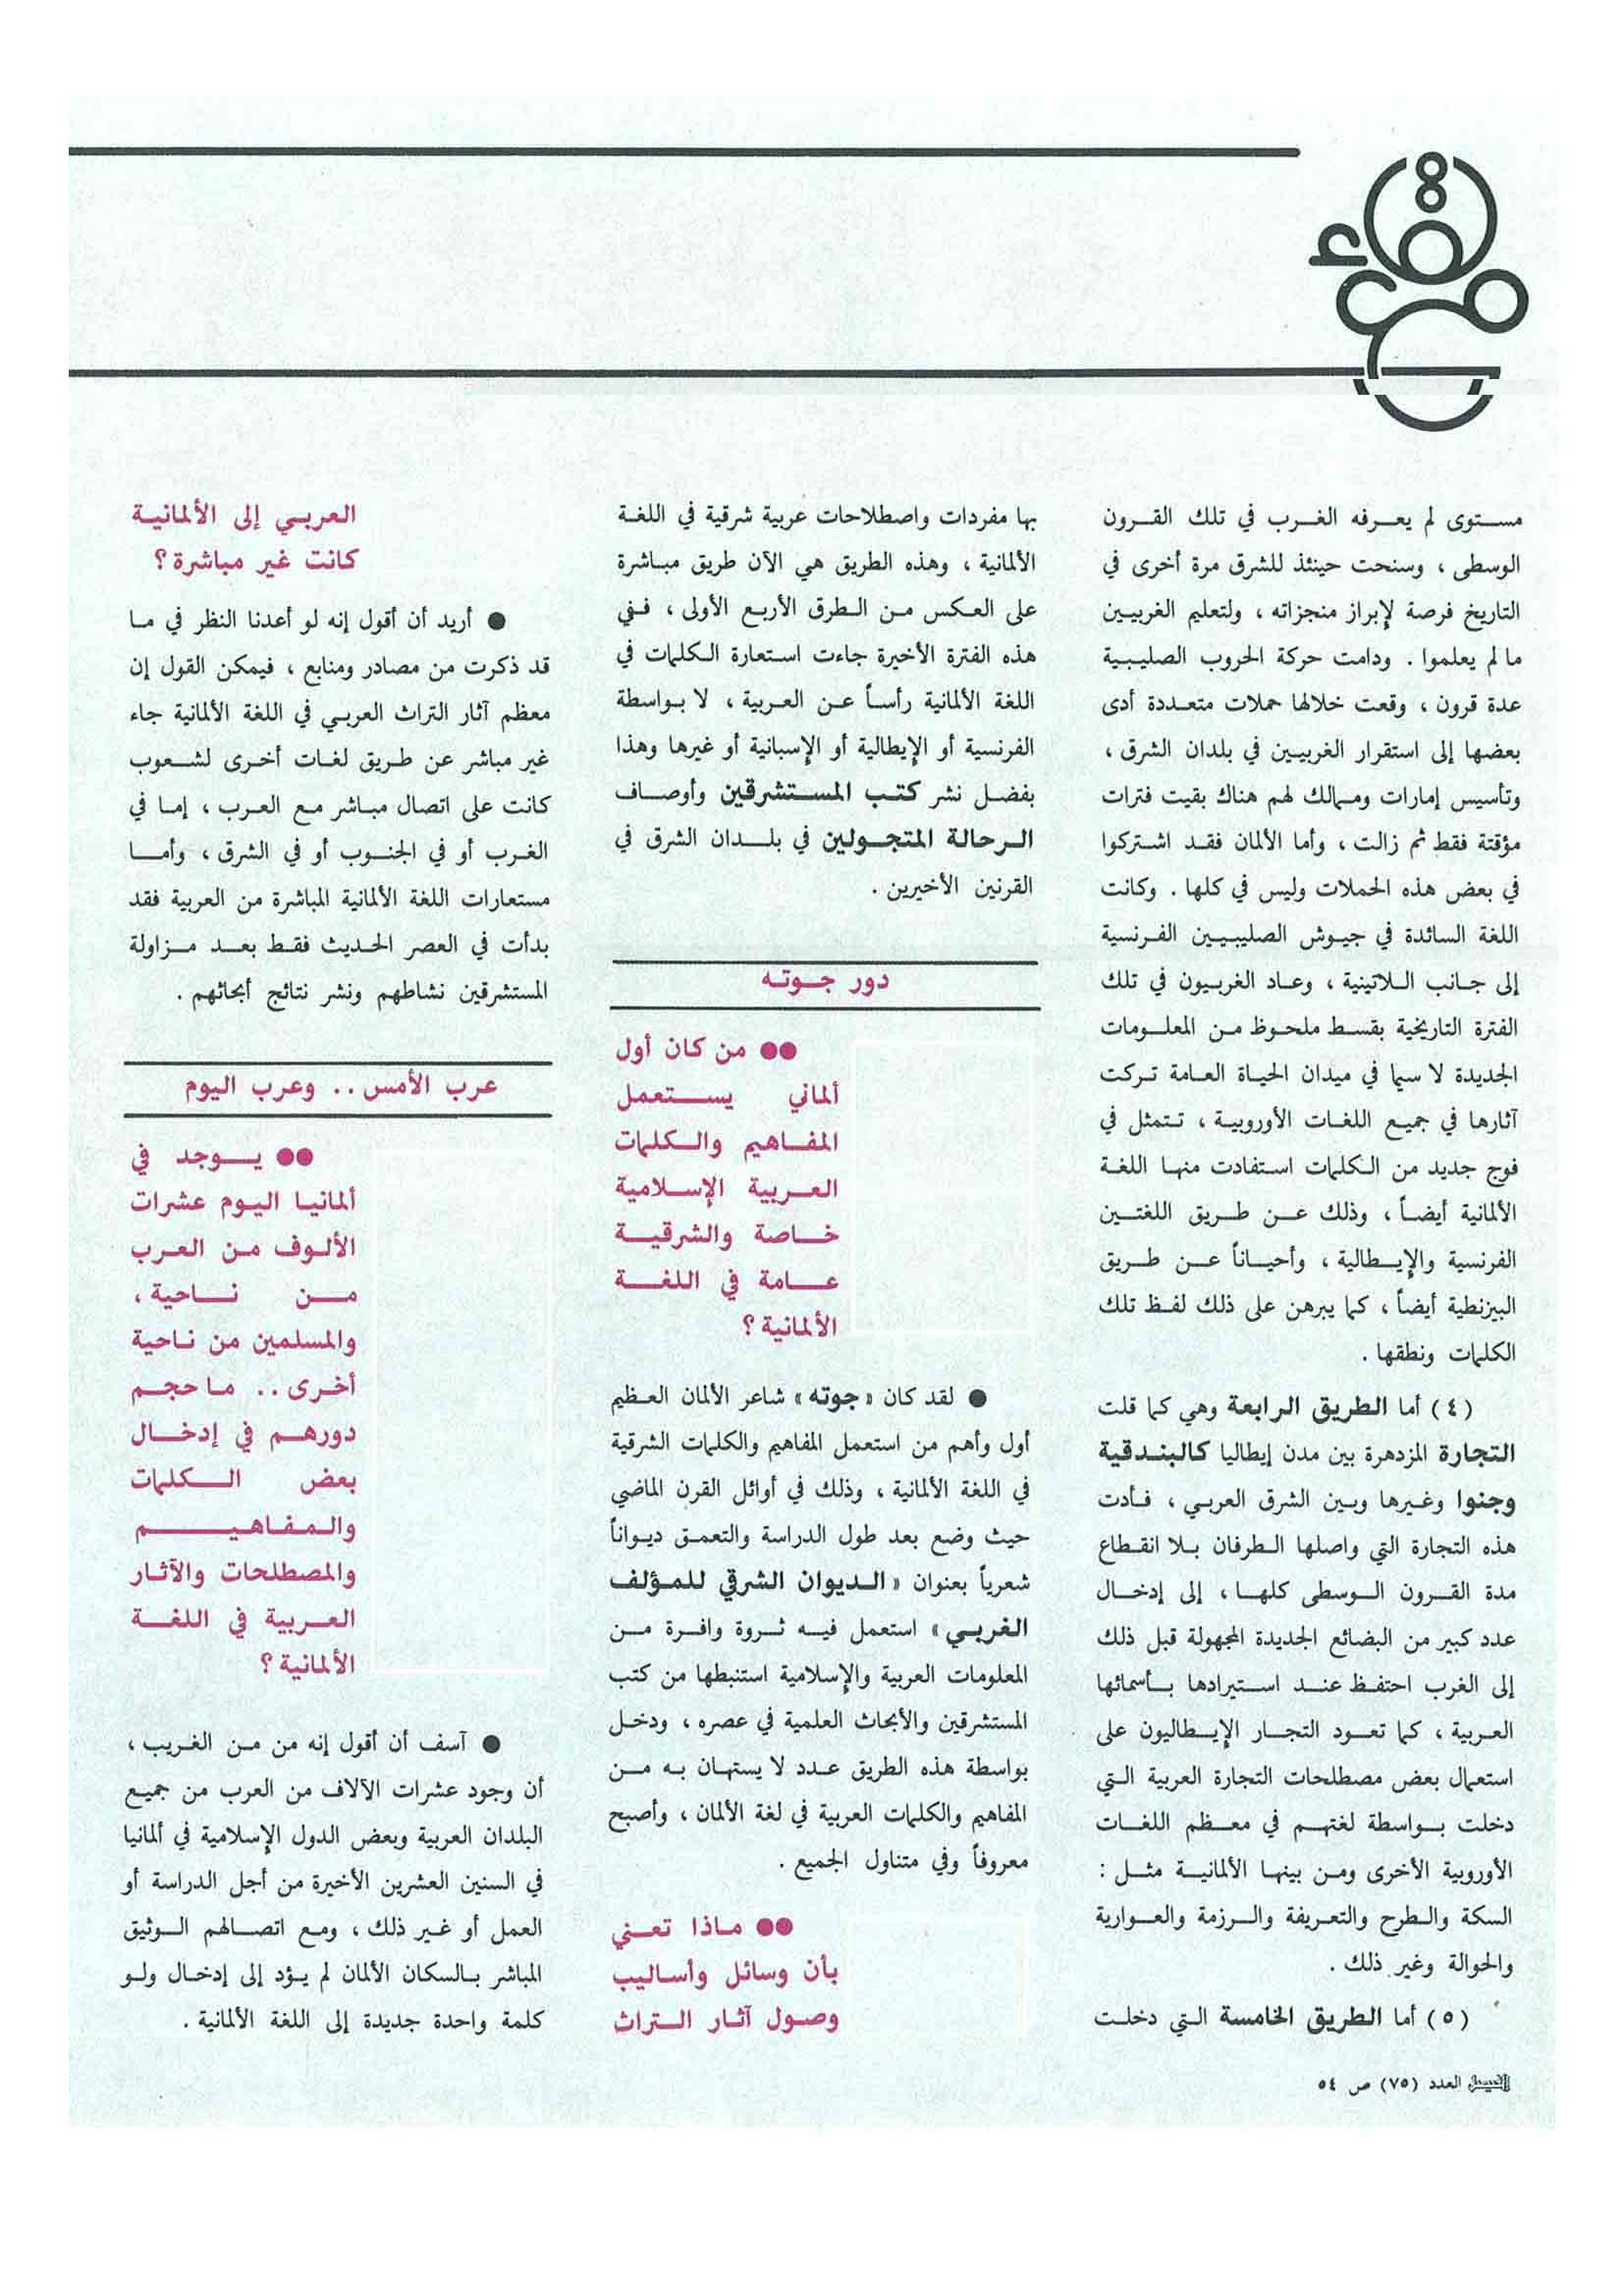 مستوى لم يعرفه الغرب في تلك القرون
الوسطى ، وسنحت حينئذ للشرق مرة أخرى في
التاريخ فرصة لإبراز منجزاته ، ولتعليم الغربيين
ما لم يعلموا . ودامت حركة الحروب الصليبية
عدة قرون ، وقعت خلالها حملات متعددة أدى
بعضها إلى استقرار الغربيين في بلدان الشرق ،
وتأسيس إمارات وممالك لهم هناك بقيت فترات
مؤقتة فقط ثم زالت ، وأما الألمان فقد اشتركوا
في بعض هذه الحملات وليس في كلها . وكانت
اللغة السائدة في جيوش الصليبيين الفرنسية
إلى جانب اللاتينية ، وعاد الغربيون في تلك
الفترة التاريخية بقسط ملحوظ من المعلومات
الجديدة لا سيما في ميدان الحياة العامة تركت
آثارها في جميع اللغات الأوروبية ، تتمثل في
فوج جديد من الكلمات استفادت منها اللغة
الألمانية أيضاً ، وذلك عن طريق اللغتين
الفرنسية والإيطالية ، وأحياناً عن طريق
البيزنطية أيضاً ، كما يبرهن على ذلك لفظ تلك
الكلمات ونطقها .
(٤) أما الطريق الرابعة وهي كما قلت
التجارة المزدهرة بين مدن إيطاليا كالبندقية
وجنوا وغيرها وبين الشرق العربي ، فأدت
هذه التجارة التي واصلها الطرفان بلا انقطاع
مدة القرون الوسطى كلها ، إلى إدخال
عدد كبير من البضائع الجديدة المجهولة قبل ذلك
إلى الغرب احتفظ عند استيرادها بأسمائها
العربية ، كما تعود التجار الإيطاليون على
استعمال بعض مصطلحات التجارة العربية التي
دخلت بواسطة لغتهم في معظم اللغات
الأوروبية الأخرى ومن بينها الألمانية مثل :
السكة والطرح والتعريفة والرزمة والعوارية
والحوالة وغير ذلك .
(٥) أما الطريق الخامسة التي دخلت
بها مفردات واصطلاحات عربية شرقية في اللغة
الألمانية ، وهذه الطريق هي الآن طريق مباشرة
على العكس من الطرق الأربع الأولى ، ففي
هذه الفترة الأخيرة جاءت استعارة الكلمات في
اللغة الألمانية رأساً عن العربية ، لا بواسطة
الفرنسية أو الإيطالية أو الإسبانية أو غيرها وهذا
بفضل نشر كتب المستشرقين وأوصاف
الرحالة المتجولين في بلدان الشرق في
القرنين الأخيرين .
دور جوته
●● من كان أول
ألماني يستعمل
المفاهيم والكلمات
العربية الإسلامية
خاصة والشرقية
عامة في اللغة
الألمانية ؟
● لقد كان « جوته » شاعر الألمان العظيم
أول وأهم من استعمل المفاهيم والكلمات الشرقية
في اللغة الألمانية ، وذلك في أوائل القرن الماضي
حيث وضع بعد طول الدراسة والتعمق ديواناً
شعرياً بعنوان « الديوان الشرقي للمؤلف
الغربي » استعمل فيه ثروة وافرة من
المعلومات العربية والإسلامية استنبطها من كتب
المستشرقين والأبحاث العلمية في عصره ، ودخل
بواسطة هذه الطريق عدد لا يستهان به من
المفاهيم والكلمات العربية في لغة الألمان ، وأصبح
معروفاً وفي متناول الجميع .
●● ماذا تعني
بأن وسائل وأساليب
وصول آثار التراث
العربي إلى الألمانية
كانت غير مباشرة ؟
● أريد أن أقول إنه لو أعدنا النظر في ما
قد ذكرت من مصادر ومنابع ، فيمكن القول إن
معظم آثار التراث العربي في اللغة الألمانية جاء
غير مباشر عن طريق لغات أخرى لشعوب
كانت على اتصال مباشر مع العرب ، إما في
الغرب أو في الجنوب أو في الشرق ، وأما
مستعارات اللغة الألمانية المباشرة من العربية فقد
بدأت في العصر الحديث فقط بعد مزاولة
المستشرقين نشاطهم ونشر نتائج أبحاثهم .
عرب الأمس .. وعرب اليوم
●● يوجد في
ألمانيا اليوم عشرات
الألوف من العرب
من ناحية ،
والمسلمين من ناحية
أخرى .. ما حجم
دورهم في إدخال
بعض الكلمات
والمفاهيم
والمصطلحات والآثار
العربية في اللغة
الألمانية ؟
● آسف أن أقول إنه من من الغريب ،
أن وجود عشرات الآلاف من العرب من جميع
البلدان العربية وبعض الدول الإسلامية في ألمانيا
في السنين العشرين الأخيرة من أجل الدراسة أو
العمل أو غير ذلك ، ومع اتصالهم الوثيق
المباشر بالسكان الألمان لم يؤد إلى إدخال ولو
كلمة واحدة جديدة إلى اللغة الألمانية .
الفيصل العدد (٧٥) ص ٥٤